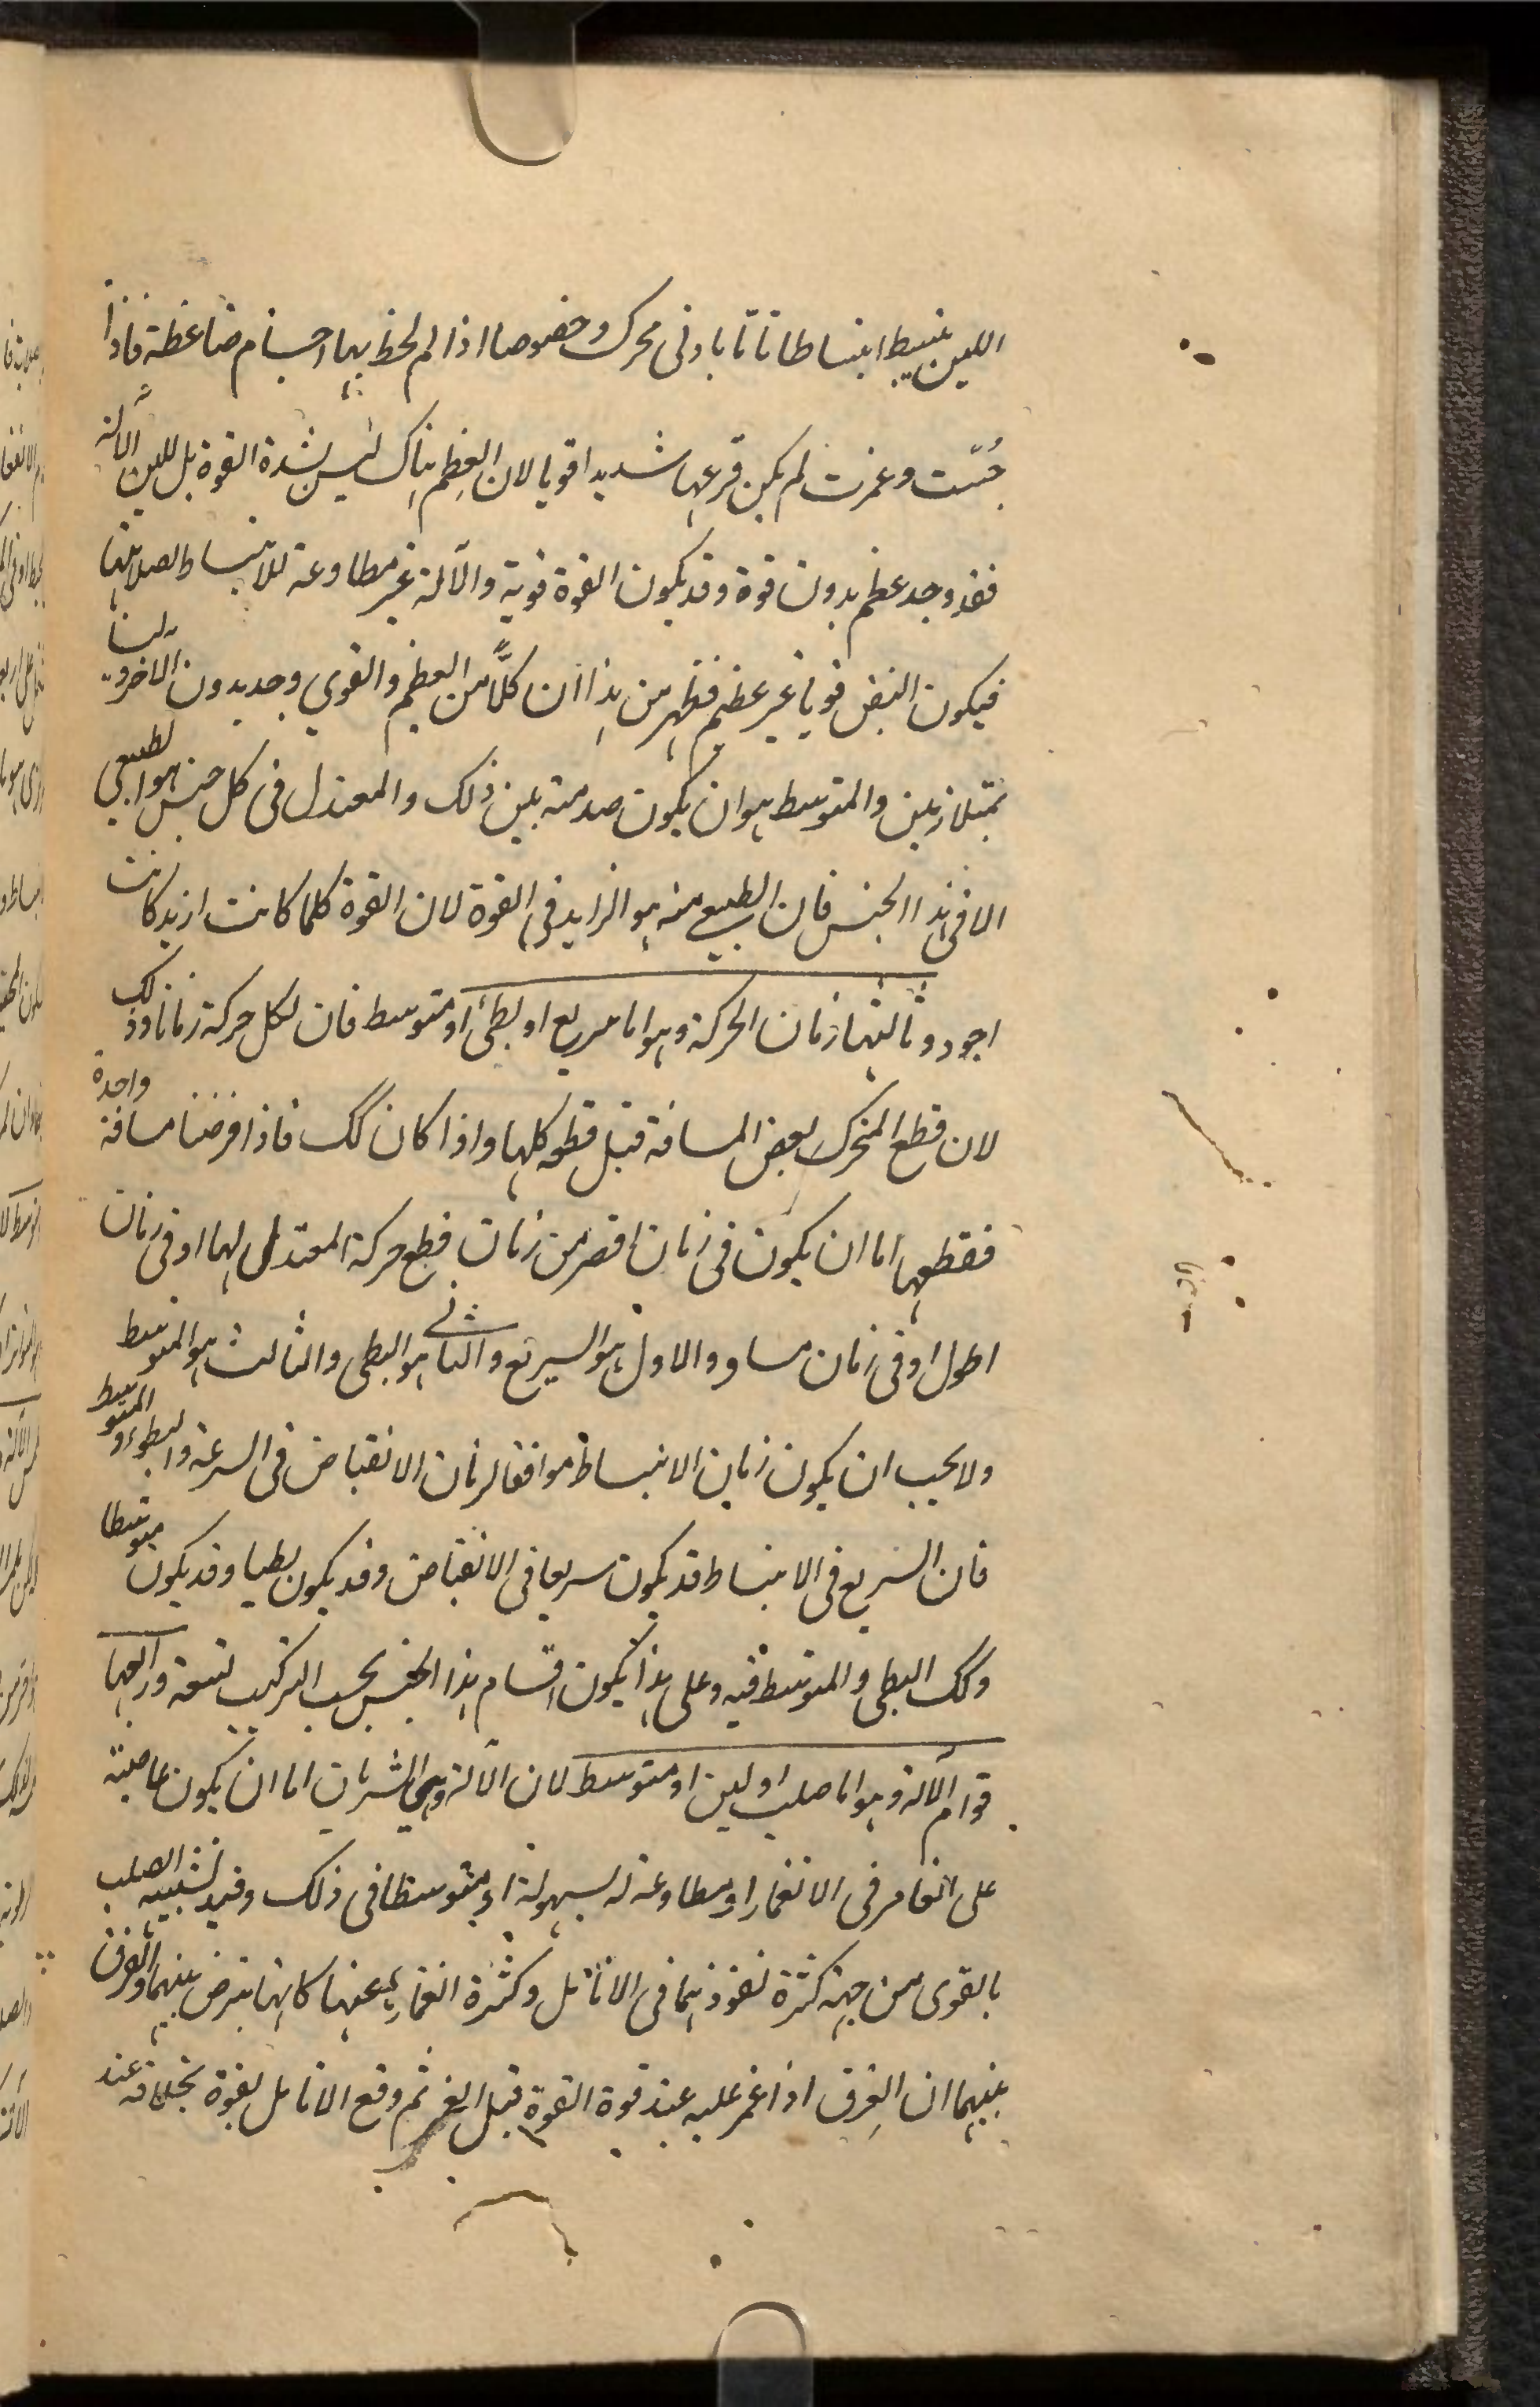 اللين ينبسط انبساطا تاما بادنى محرك وخصوصا اذا لم يحط بها اجسام ضاغطة فاذا
جُسّت وغمزت لم يكن قرعها شديدا قويا لان العِظم هناك ليس لشدة القوة بل للين الآلة
فقد وجد عظم بدون قوة وقد يكون القوة قوية والآلة غير مطاوعة للانبساط لصلابتها
فيكون النبض قويا غير عظيم فظهر من هذا ان كلًّا من العظيم والقوي وجد بدون الاخر وليسا
بمتلازمين والمتوسط هو ان يكون صدمته بين ذلك والمعتدل فى كل جنس هو الطبيعي
الا فى هذا الجنس فان الطبيعي منه هو الزايد في القوة لان القوة كلما كانت ازيد كانت
اجود وثالثها زمان الحركة وهو اما سريع او بطئ او متوسط فان لكل حركة زمانا وذلك
لان قطع المتحرك بعض المسافة قبل قطعه كلها واذا كان كك فاذا فرضنا مسافة واحدة
فقطعها اما ان يكون فى زمان اقصر من زمان قطع حركة المعتدل لها او فى زمان
اطول او فى زمان مساو والاول هو السريع والثانى هو البطى والثالث هو المتوسط
ولا يجب ان يكون زمان الانبساط موافقا لزمان الانقباض فى السرعة والبطوء والمتوسط
فان السريع فى الانبساط قد يكون سريعا فى الانقباض وقد يكون بطيا وقد يكون متوسطا
وكك البطى والمتوسط فيه وعلى هذا يكون اقسام هذا الجنس بحسب التركيب تسعة ورابعها
قوام الآلة وهو اما صلب او لين او متوسط لان الآلة وهي الشريان اما ان يكون عاصية
على الغامز فى الانغماز او مطاوعة له بسهولة او متوسطا فى ذلك وقيد تشبيه الصلب
بالقوى من جهة كثرة نفوذهما فى الانامل وكثرة انغماز عنها كانها بعرض بينهما والفرق
بينهما ان العرق اذا غمز عليه عند قوة القوة قبل الغمز ثم وقع الانامل بقوة بخلافه عند